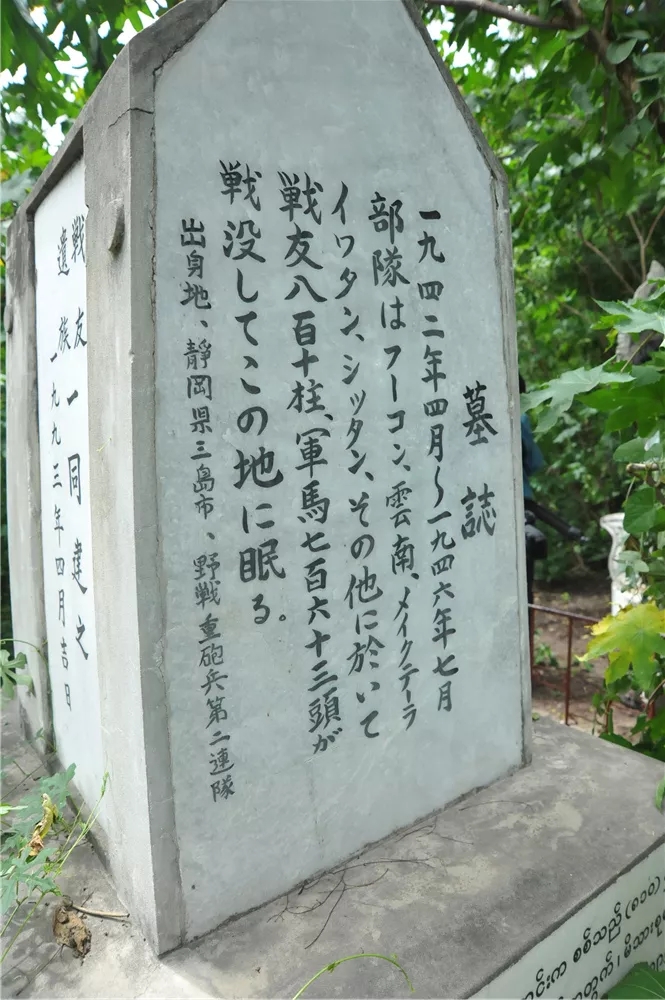 墓誌
一九四二年四月〜一九四六年七月
部隊はフーコン、雲南、メイクテーラ
イワタン、シッタン、その他に於いて
戦友八百十柱、軍馬七百六十三頭が
戦没してこの地に眠る。
出身地、静岡県三島市、野戦重砲兵第二連隊
戦友一同建之
遺族
一九九三年四月吉日